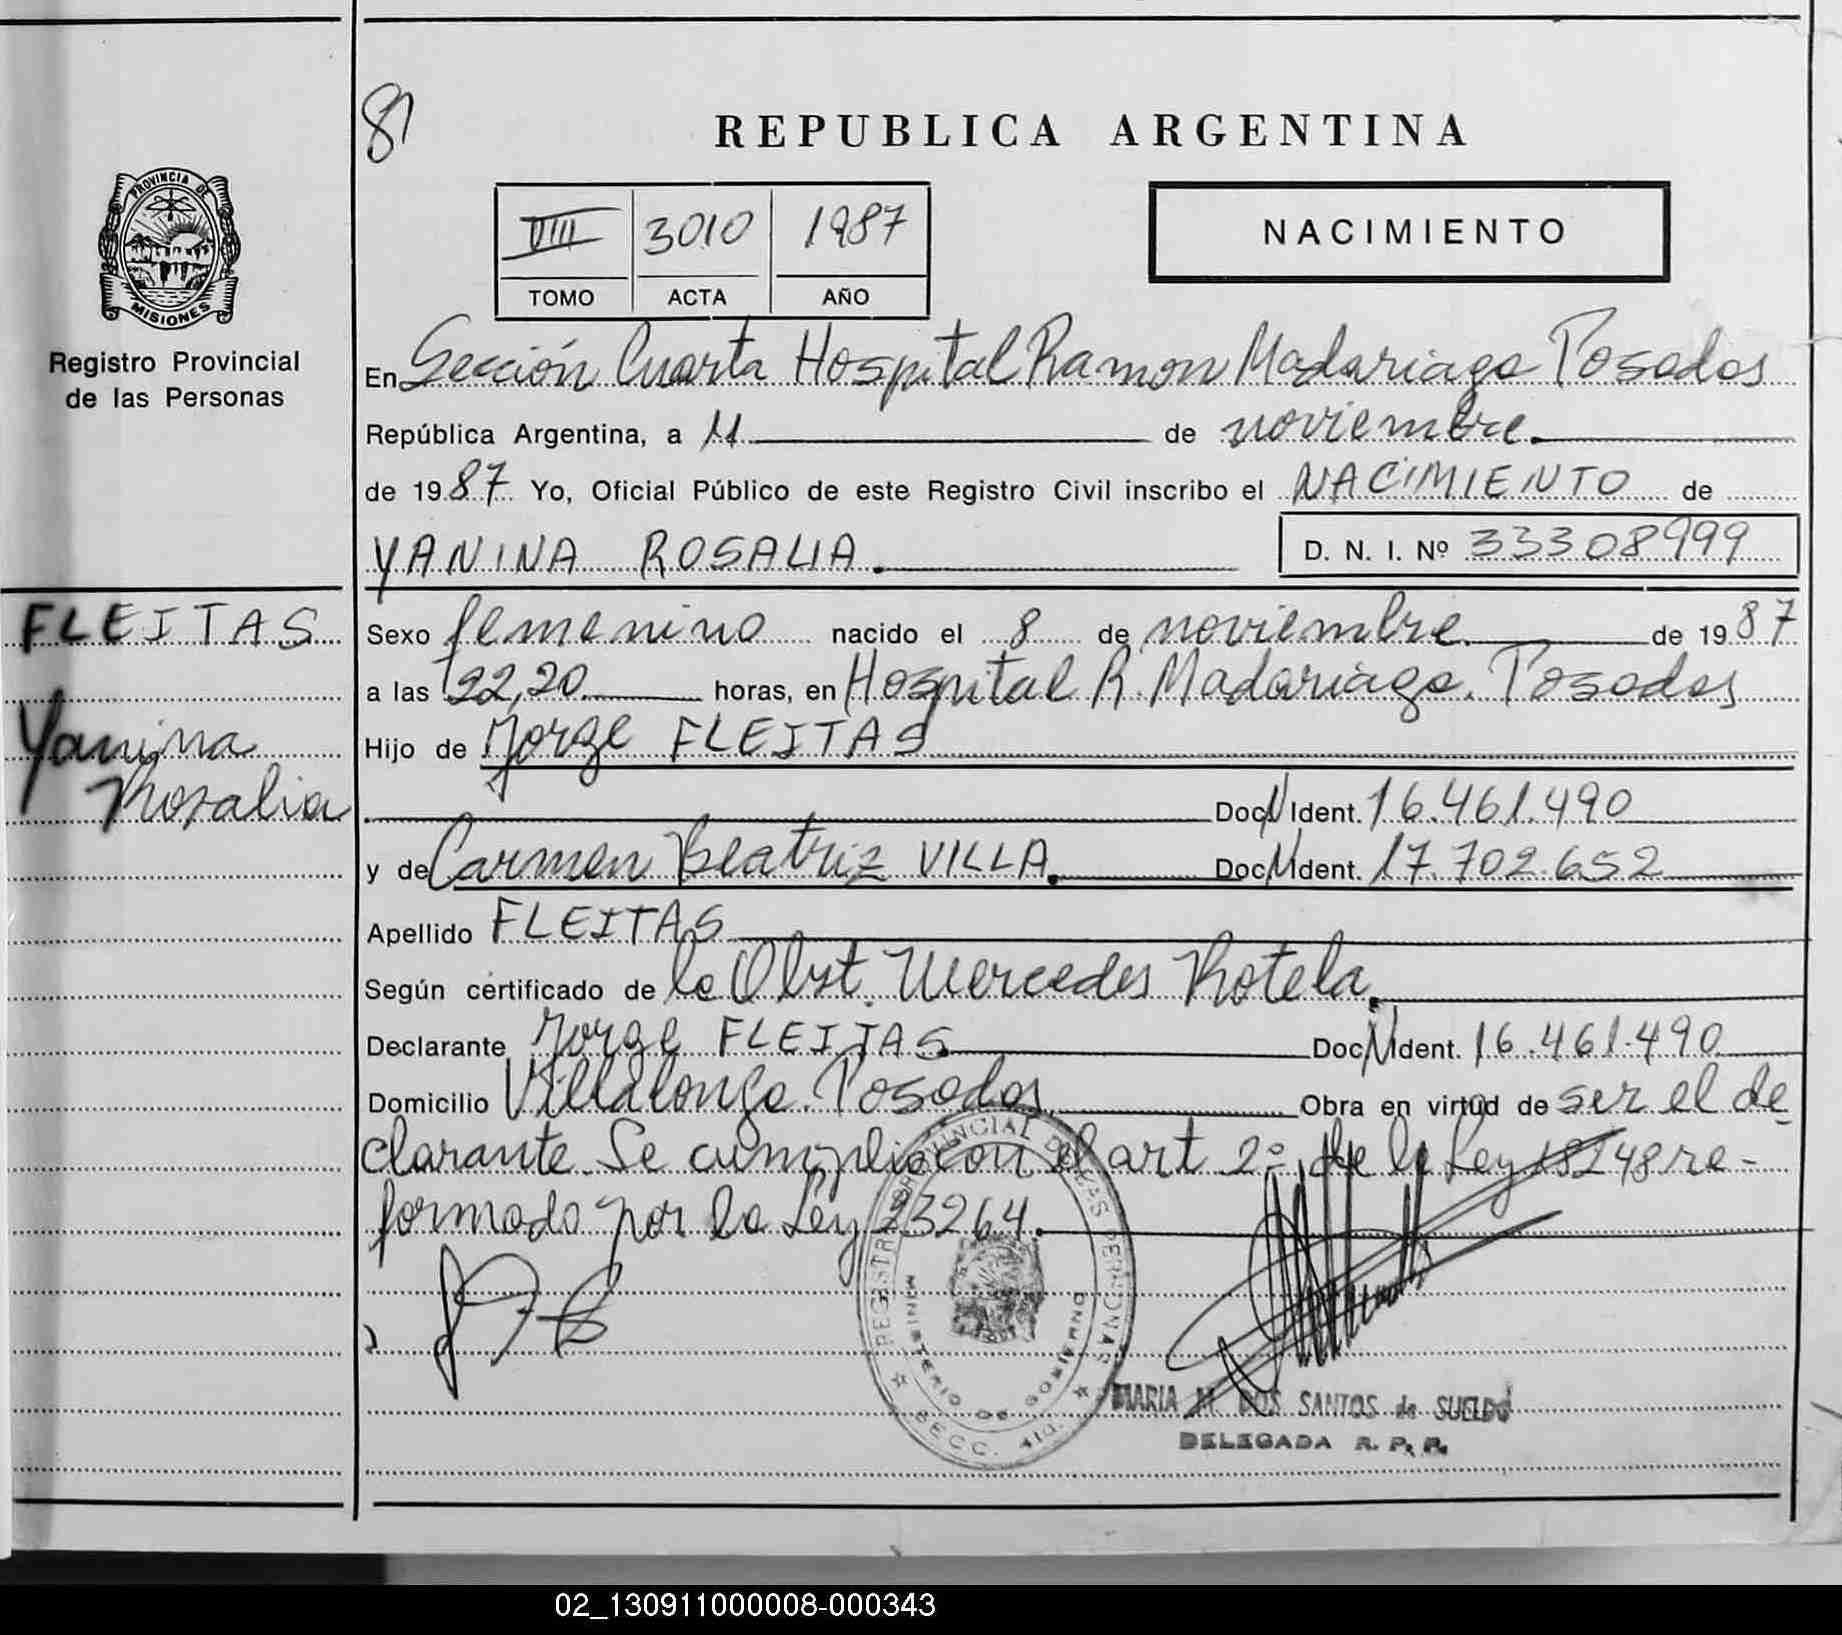 87
REPUBLICA ARGENTINA
PROVINCIA DE
MISIONES
Registro Provincial
de las Personas
VIII 3010 1987
TOMO ACTA AÑO
NACIMIENTO
En Sección Cuarta Hospital Ramon Madariaga Posadas
República Argentina, a 11 de noviembre.
de 1987 Yo, Oficial Público de este Registro Civil inscribo el NACIMIENTO de
YANINA ROSALIA. D. N. I. Nº 33308999
FLEITAS
Yanina
Rosalia
Sexo femenino nacido el 8 de noviembre de 1987
a las 22,20 horas, en Hospital R. Madariaga. Posadas
Hijo de Jorge FLEITAS
Doc N Ident. 16.461.490
y de Carmen Beatriz VILLA. Doc N Ident. 17.702.652
Apellido FLEITAS
Según certificado de la Obst. Mercedes Rotela.
Declarante Jorge FLEITAS Doc N Ident. 16.461.490
Domicilio Villalonga. Posadas Obra en virtud de ser el de
clarante. Se cumplio con el art 2º de la Ley 18248 re-
formado por la Ley 23264.
REGISTRO PROVINCIAL DE LAS PERSONAS
MINISTERIO DE GOBIERNO
SECC. 4ta.
MARIA M. DOS SANTOS de SUELDO
DELEGADA R. P. P.
02_130911000008-000343